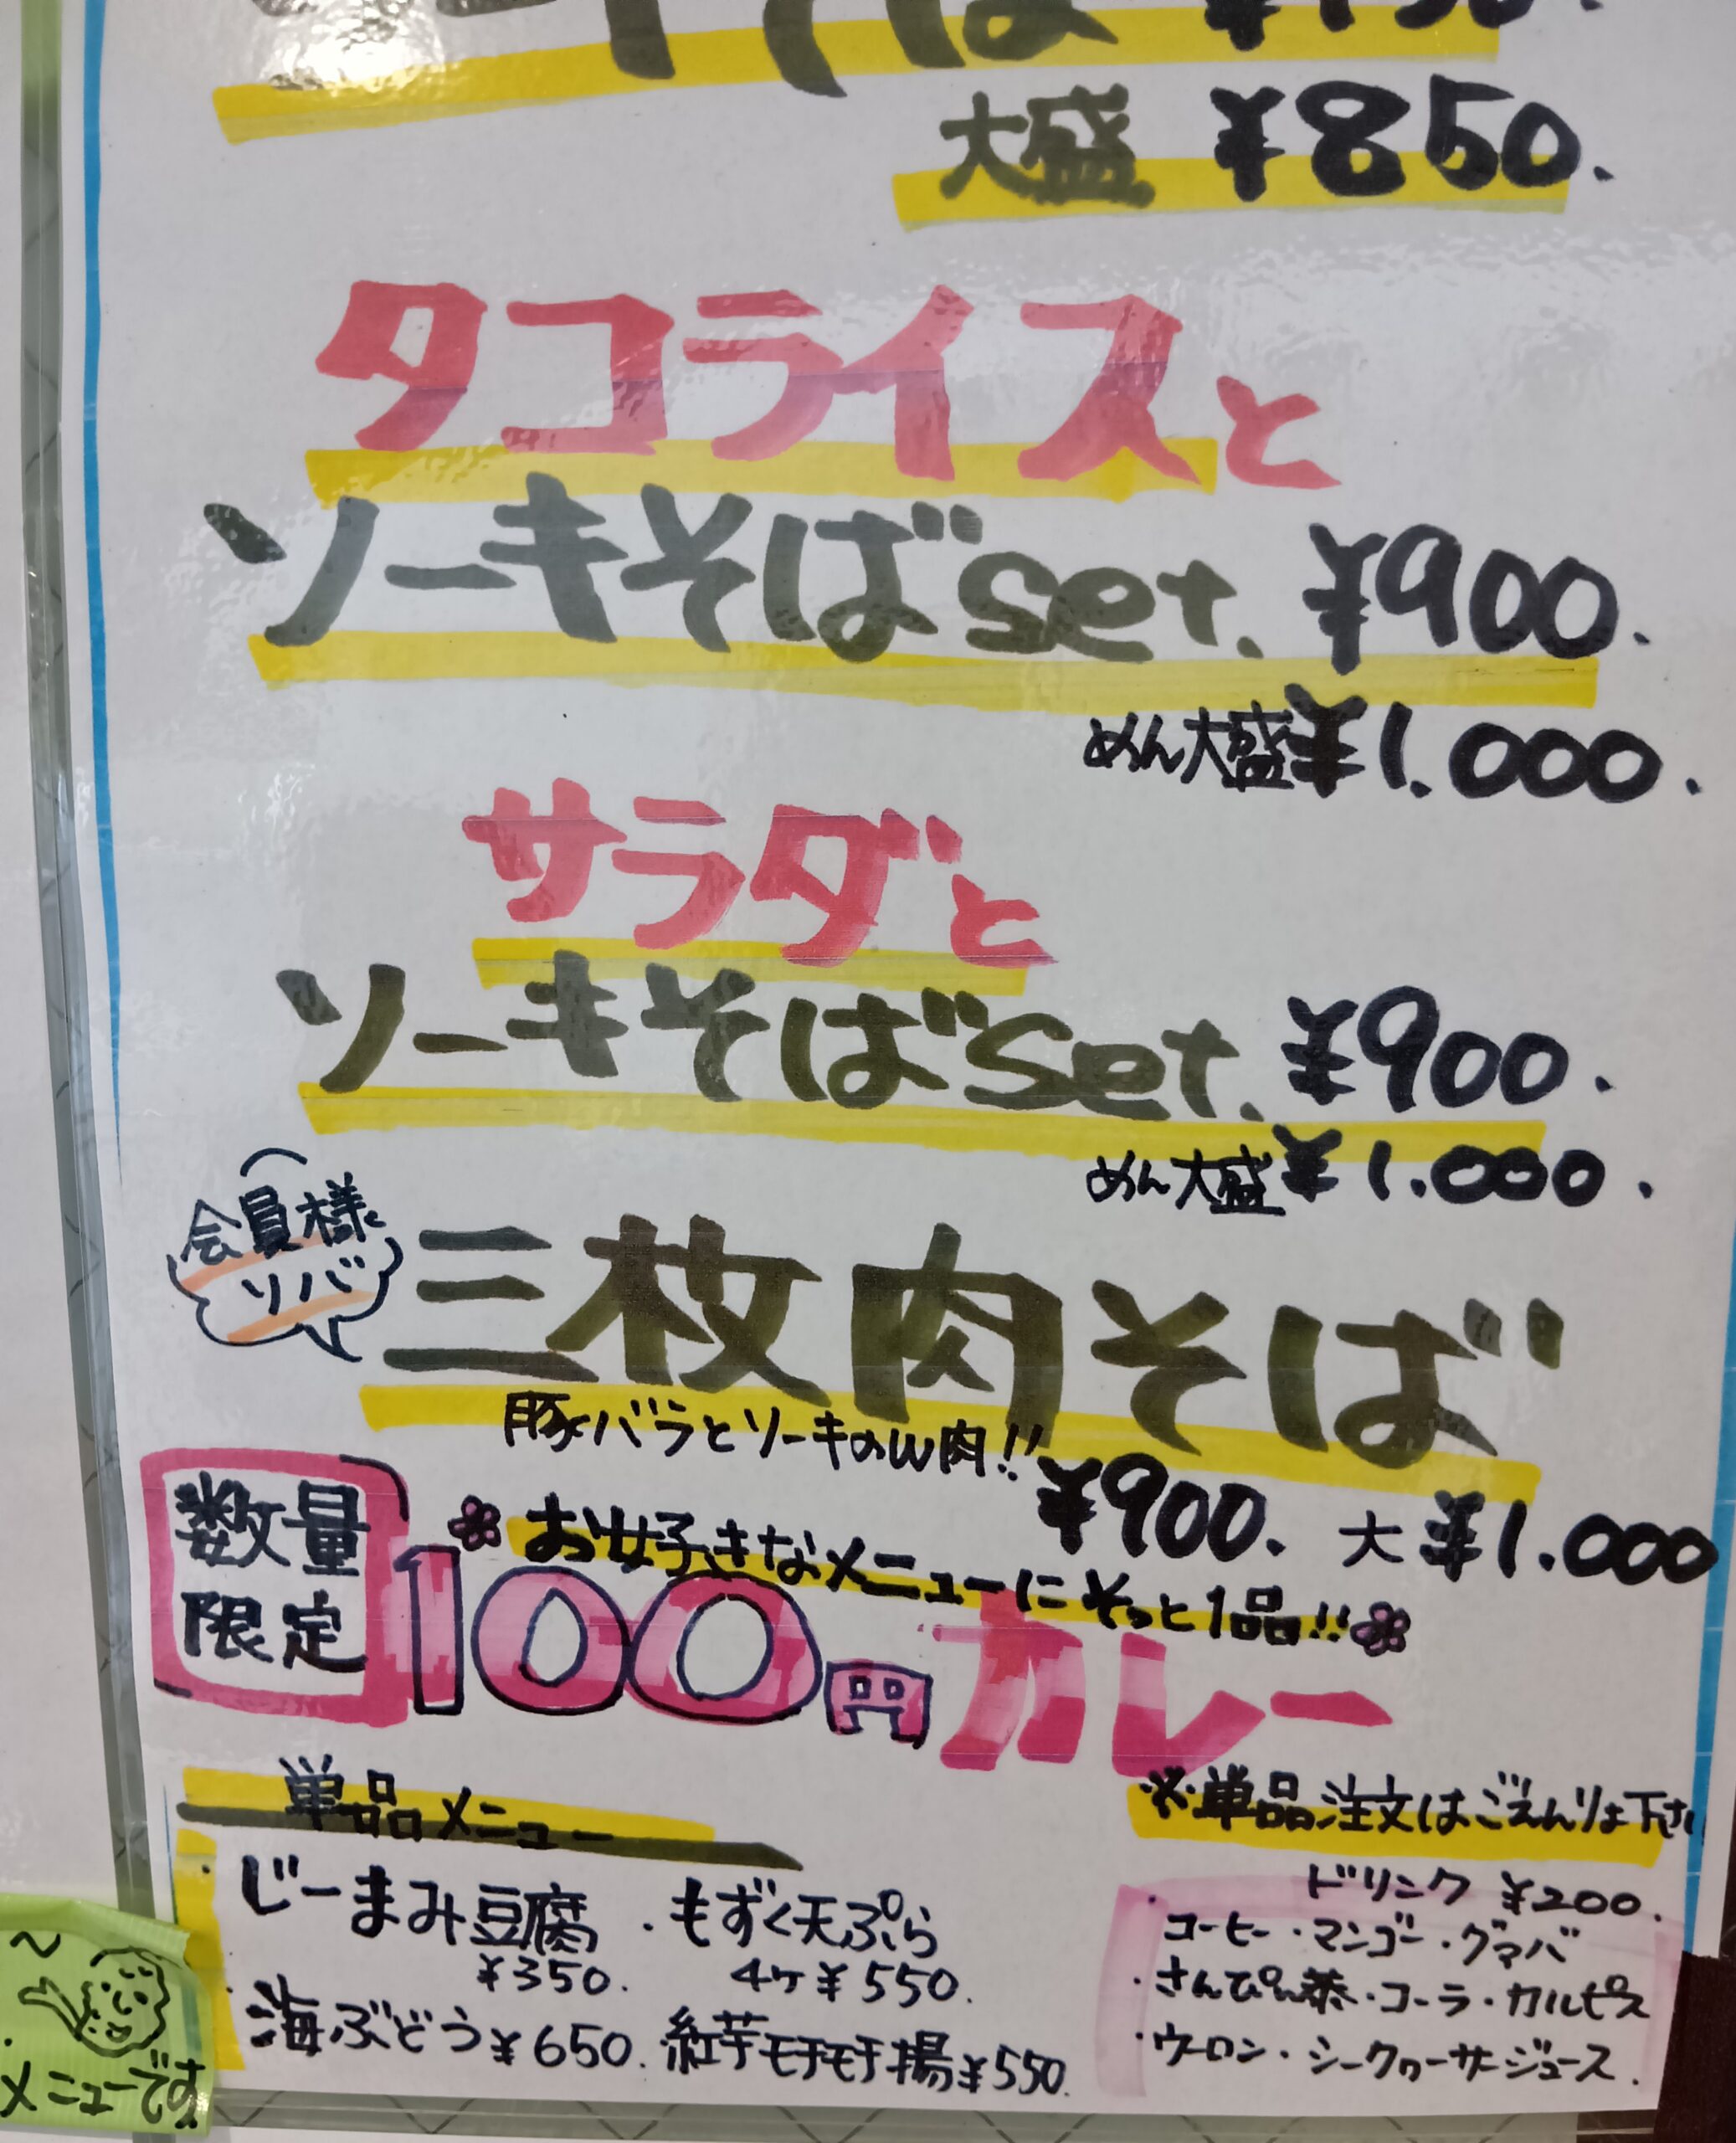 ーキそば ¥750.
大盛 ¥850.
タコライスと
ソーキそばset. ¥900.
めん大盛¥1.000.
サラダと
ソーキそばset. ¥900.
めん大盛¥1.000.
会員様
ソバ
三枚肉そば
豚バラとソーキのW肉!!
¥900. 大¥1.000
数量
限定
お好きなメニューにそっと1品!!
100円カレー
単品メニュー
※単品注文はごえんりょ下さい
・じーまみ豆腐
¥350.
・もずく天ぷら
4ヶ¥550.
・海ぶどう¥650. 紅芋モチモチ揚¥550.
ドリンク ¥200.
・コーヒー・マンゴー・グァバ
・さんぴん茶・コーラ・カルピス
・ウーロン・シークヮーサージュース.
メニューです